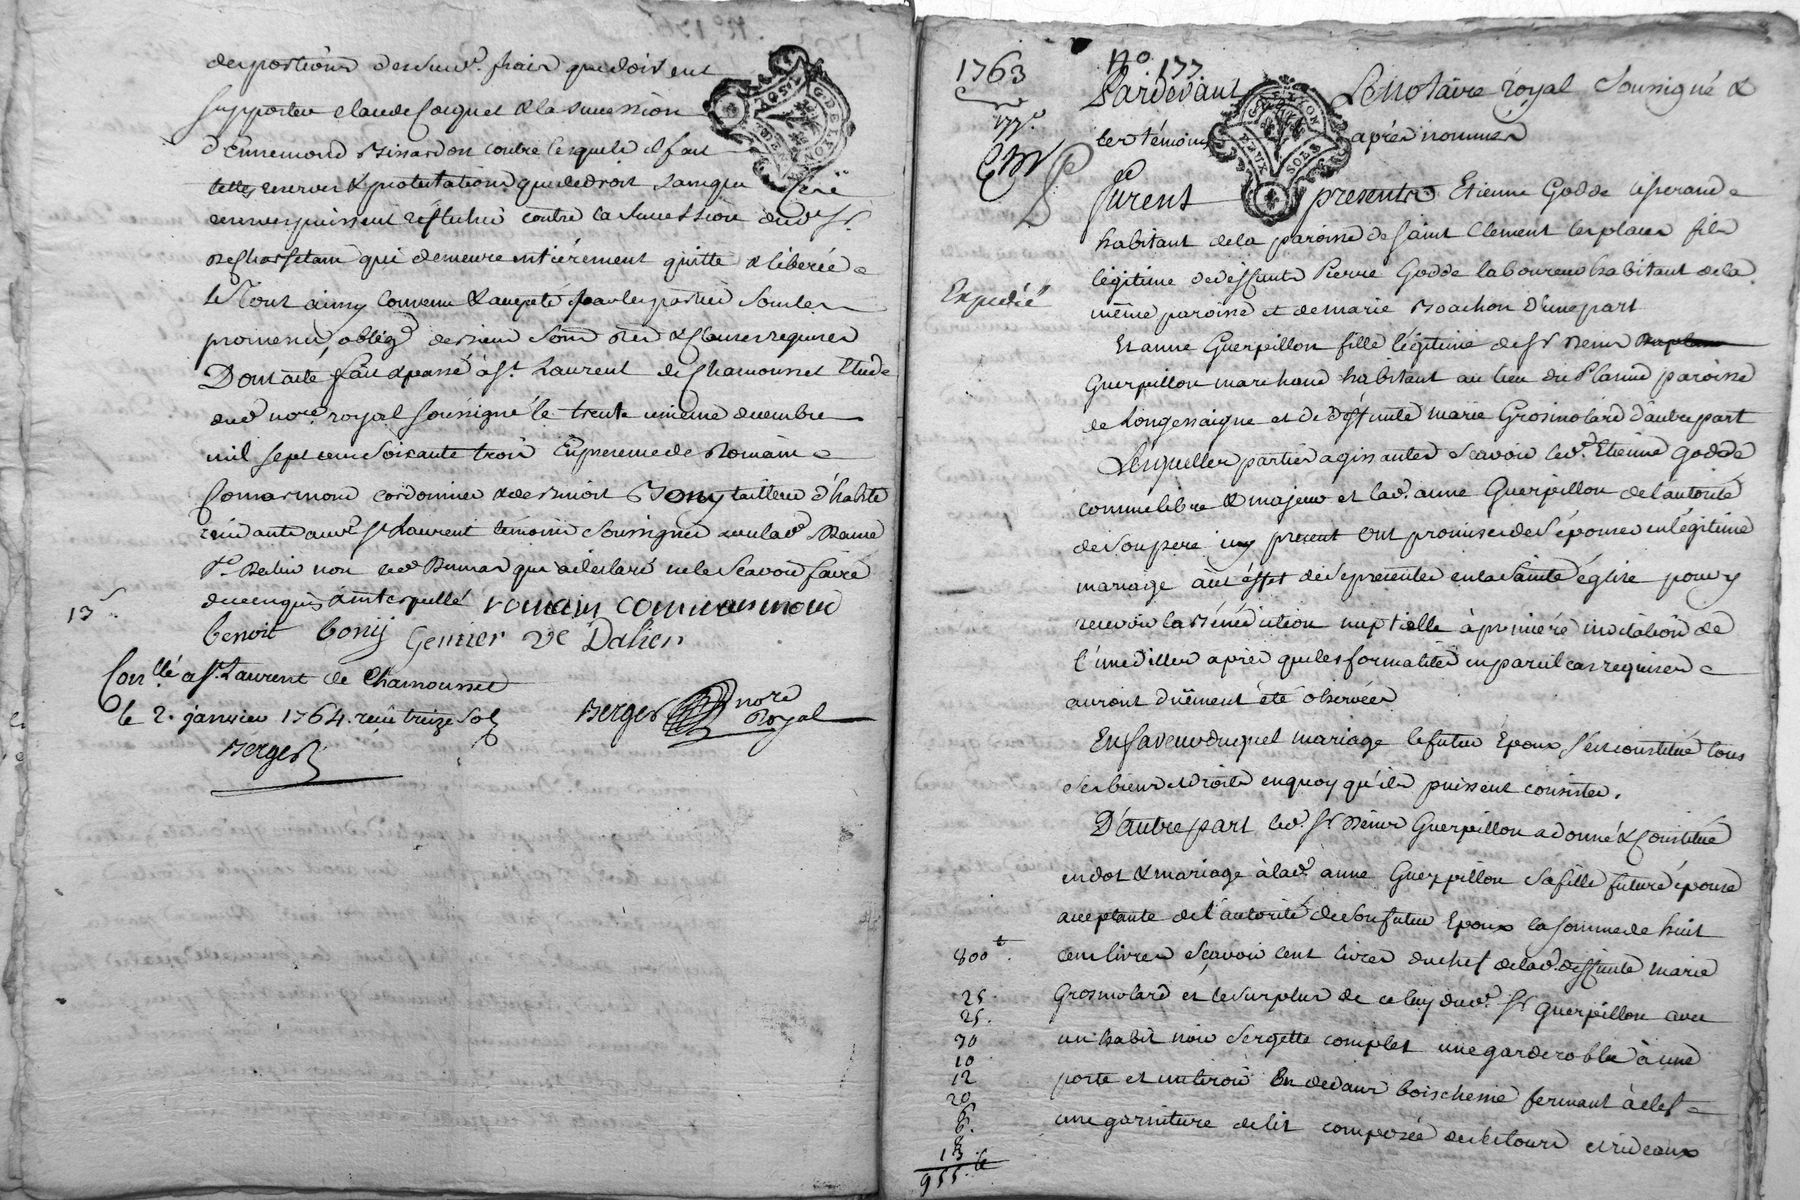 des portions des susd. frais que doivent
supporter claude Coquet & la succession
d'Ennemond Bissardon contre lesquels il fait
telles reserves & protestations que de droit sans que
reserves puissent refluer contre la succession dud. Sr.
qui demeure entièrement quitte & libérée
le Tout ainsy convenu & accepté par les parties sous les
promesses, oblig. de biens soum. ren. & clauses requises
Dont acte fait & passé à St. Laurent de Chamousset Etude
dud. nore. royal soussigné le trente unieme decembre
mil sept cent soixante trois En presence de Romain
Comarmond cordonnier & de Benoit Bony tailleur d'habits
residants aud. St Laurent témoins soussignés avec lad. Dame
non led. Dumas qui a déclaré ne le scavoir faire
de ce enquis & interpellé romain comarmond
13 s.
benoit bony Genier ve Dalier
Con.llé a St. Laurent de Chamousset
le 2. janvier 1764 reçu treize sols
Berger nore Royal
Berger
1763
N.o 177
Pardevant Le Notaire royal soussigné &
177.e
les témoins après nommés
Furent presents Etienne Godde tisserand
habitant de la paroisse de saint Clement les places fils
légitime de deffunts Pierre Godde laboureur habitant de la
Expedié
même paroisse et de marie Boachon D'une part
Et anne Guerpillon fille légitime de Sr Denis
Guerpillon marchand habitant au lieu du Planil paroisse
de Longessaigne et de deffunte marie Grosmolard d'autre part
Lesquelles parties agissantes scavoir led. Etienne Godde
comme libre & majeur et lad. anne Guerpillon de l'autorité
de son pere icy present ont promis de s'épouser en légitime
mariage à cet effet de se presenter en la sainte église pour y
recevoir la Bénédiction nuptialle à premiére invitation de
l'une d'illes après que les formalités en pareil cas requises
auront duëment été observées
En faveur duquel mariage le futur Epoux s'est constitué tous
ses biens et droits en quoy qu'ils puissent consister.
D'autre part led. Sr Denis Guerpillon a donné & constitué
en dot & mariage à lad. anne Guerpillon sa fille future épouse
acceptante de l'autorité de son futur Epoux la somme de huit
800 t.
cent livres scavoir cent livres du chef de lad. deffunte marie
25
Grosmolard et le surplus de celuy dud. Sr Guerpillon avec
25.
70
un habit noir sergette complet une garderobbe à une
10
12
porte et un tiroir En dedans bois chesne fermant à clef
20
6.
une garniture de lit composée de six tours et rideaux
13
955 t